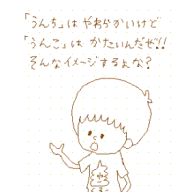 「うんち」は やわらかいけど
「うんこ」は かたいんだぜ!!
そんなイメージするよな?